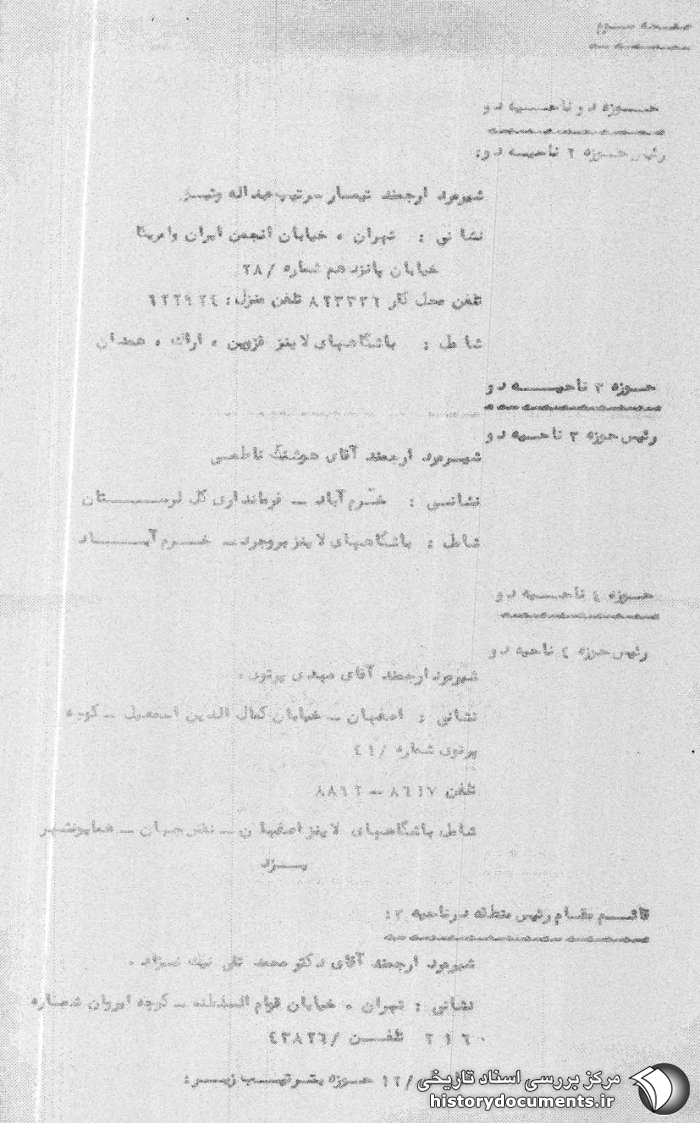 صفحه سوم
حـــوزه دو ناحـــیه دو
رئیس حــوزه ۲ ناحیــه دو:
شیرمرد ارجمند تیمسار سرتیپ عبداله وثیــق
نشانی : تهران ، خیابان انجمن ایران وامریکا
خیابان پانزدهم شماره /۲۸
تلفن محل کار ۸۲۳۳۳۶ تلفن منزل: ۶۲۲۹۲۴
شامل : باشگاههای لاینز قزوین ، اراک ، همدان
حــوزه ۳ ناحیــــه دو
رئیس حوزه ۳ ناحــیه دو
شیــرمرد ارجمند آقای هوشنگ ناطمــی
نشانــی : خــرم آباد ــ فرمانداری کل لرســــتان
شامل : باشگاههای لاینز بروجرد ــ خــرم آبــــاد
حــوزه ٤ ناحــیه دو
رئیس حوزه ٤ ناحیه دو
شیرمرد ارجمند آقای مهدی پرتوی ۰
نشانی : اصفهان ــ خیابان کمال الدین اسمعیل ــ کوچه
پرتوی شماره /٤١
تلفن ۸٦۱۷ ــ ۸۸٦۲
شامل باشگاههای لاینز اصفهان ــ نقش جهان ــ همایونشهر
یـــزد
قائــم مقــام رئیس منطقه در ناحیه ۲:
شیرمرد ارجمند آقای دکتر محمد تقی نیک نــژاد ۰
نشانی : تهران ، خیابان قوام السلطنه ــ کوچه ایروان شمــاره
۲۱٦۰ تلفــن /٤۳۸۳٦
/۱۲ حــوزه بتــرتیــب زیــر:
مرکز بررسی اسناد تاریخی
historydocuments.ir